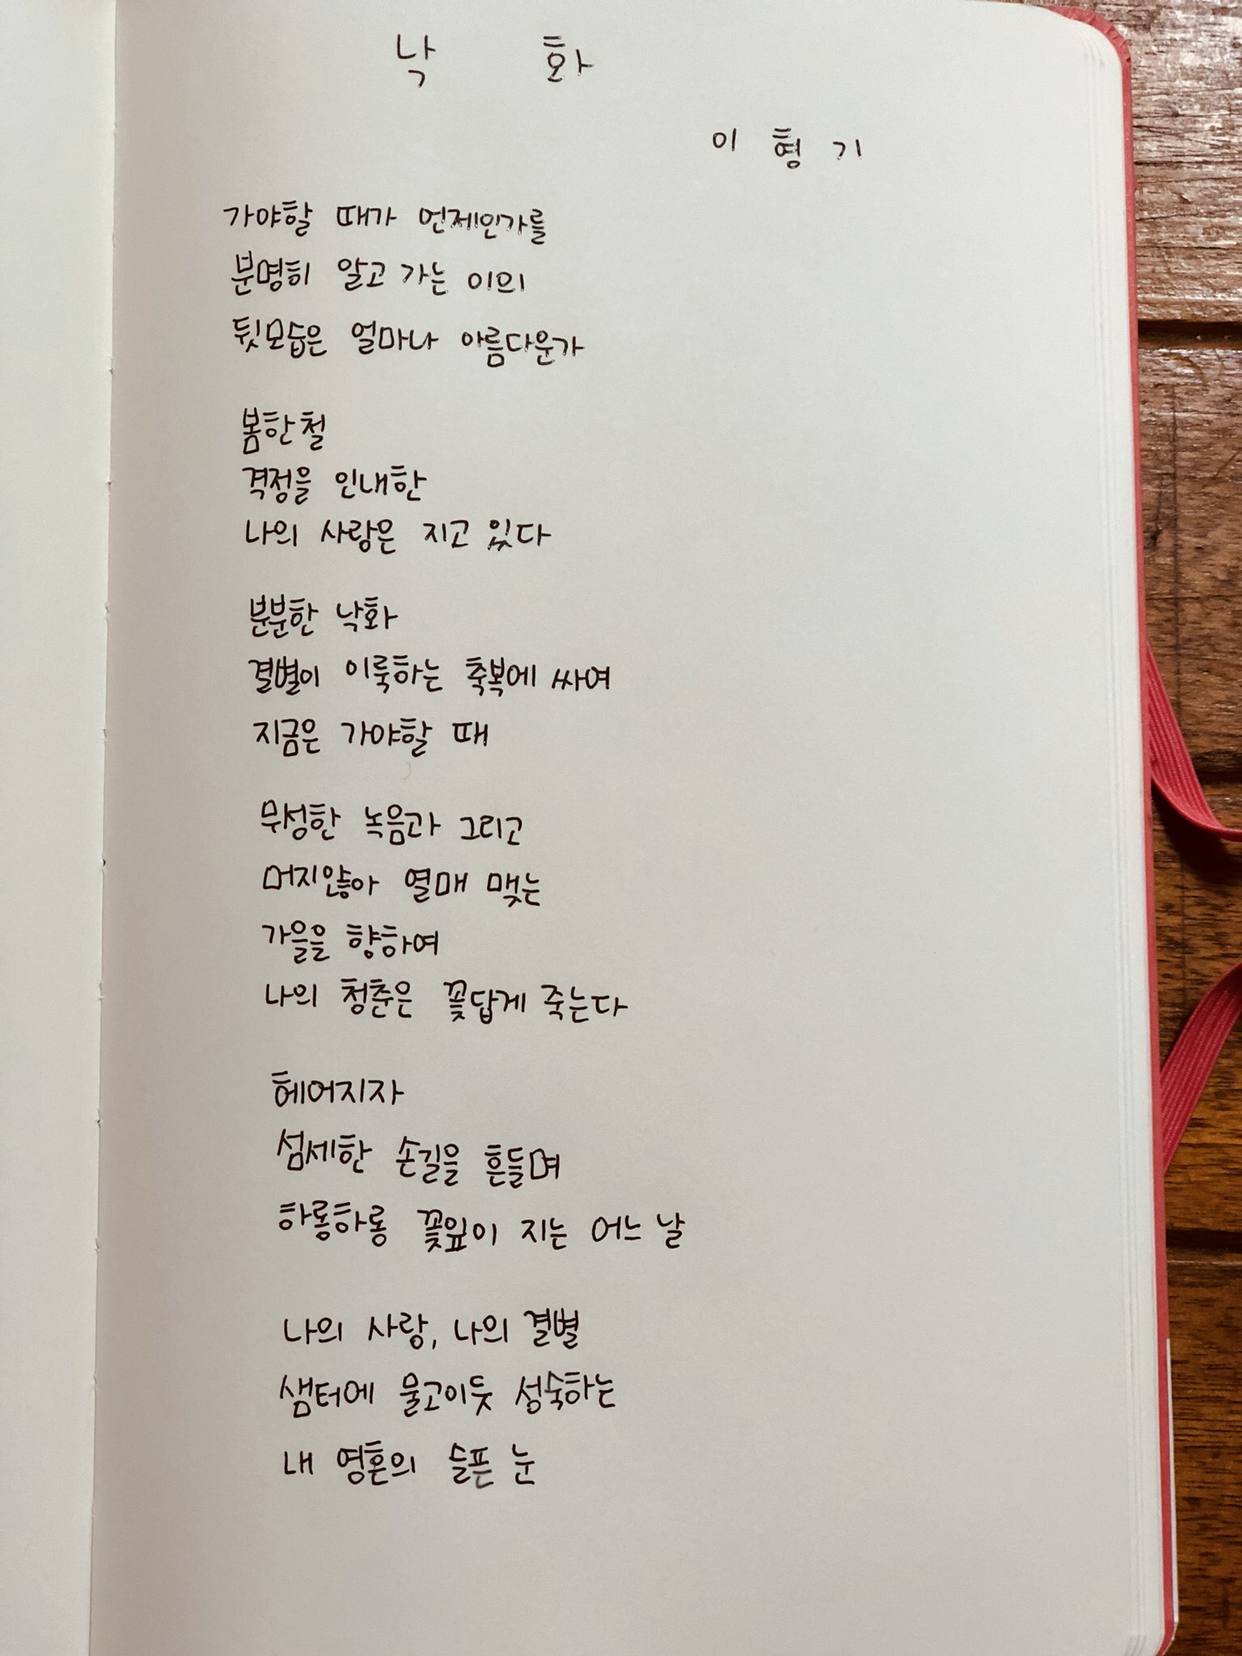 낙 화
이 형 기
가야할 때가 언제인가를
분명히 알고 가는 이의
뒷모습은 얼마나 아름다운가
봄한철
격정을 인내한
나의 사랑은 지고 있다
분분한 낙화
결별이 이룩하는 축복에 싸여
지금은 가야할 때
무성한 녹음과 그리고
머지않아 열매 맺는
가을을 향하여
나의 청춘은 꽃답게 죽는다
헤어지자
섬세한 손길을 흔들며
하롱하롱 꽃잎이 지는 어느 날
나의 사랑, 나의 결별
샘터에 물고이듯 성숙하는
내 영혼의 슬픈 눈